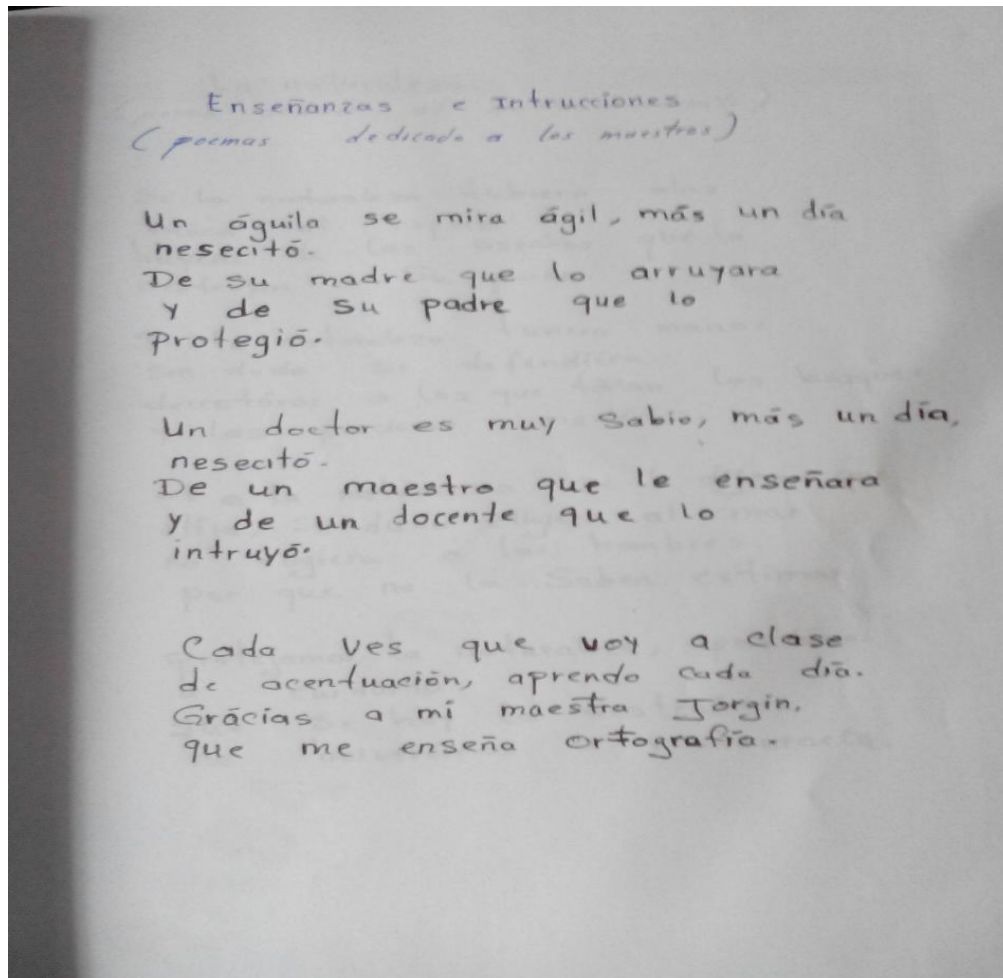 Enseñanzas e Intrucciones
(poemas dedicado a los maestros)
Un águila se mira ágil, más un día
nesecitó.
De su madre que lo arruyara
y de su padre que lo
protegió.
Un doctor es muy sabio, más un día,
nesecitó.
De un maestro que le enseñara
y de un docente que lo
intruyó.
Cada ves que voy a clase
de acentuación, aprendo cada día.
Grácias a mí maestra Jorgin,
que me enseña ortografía.